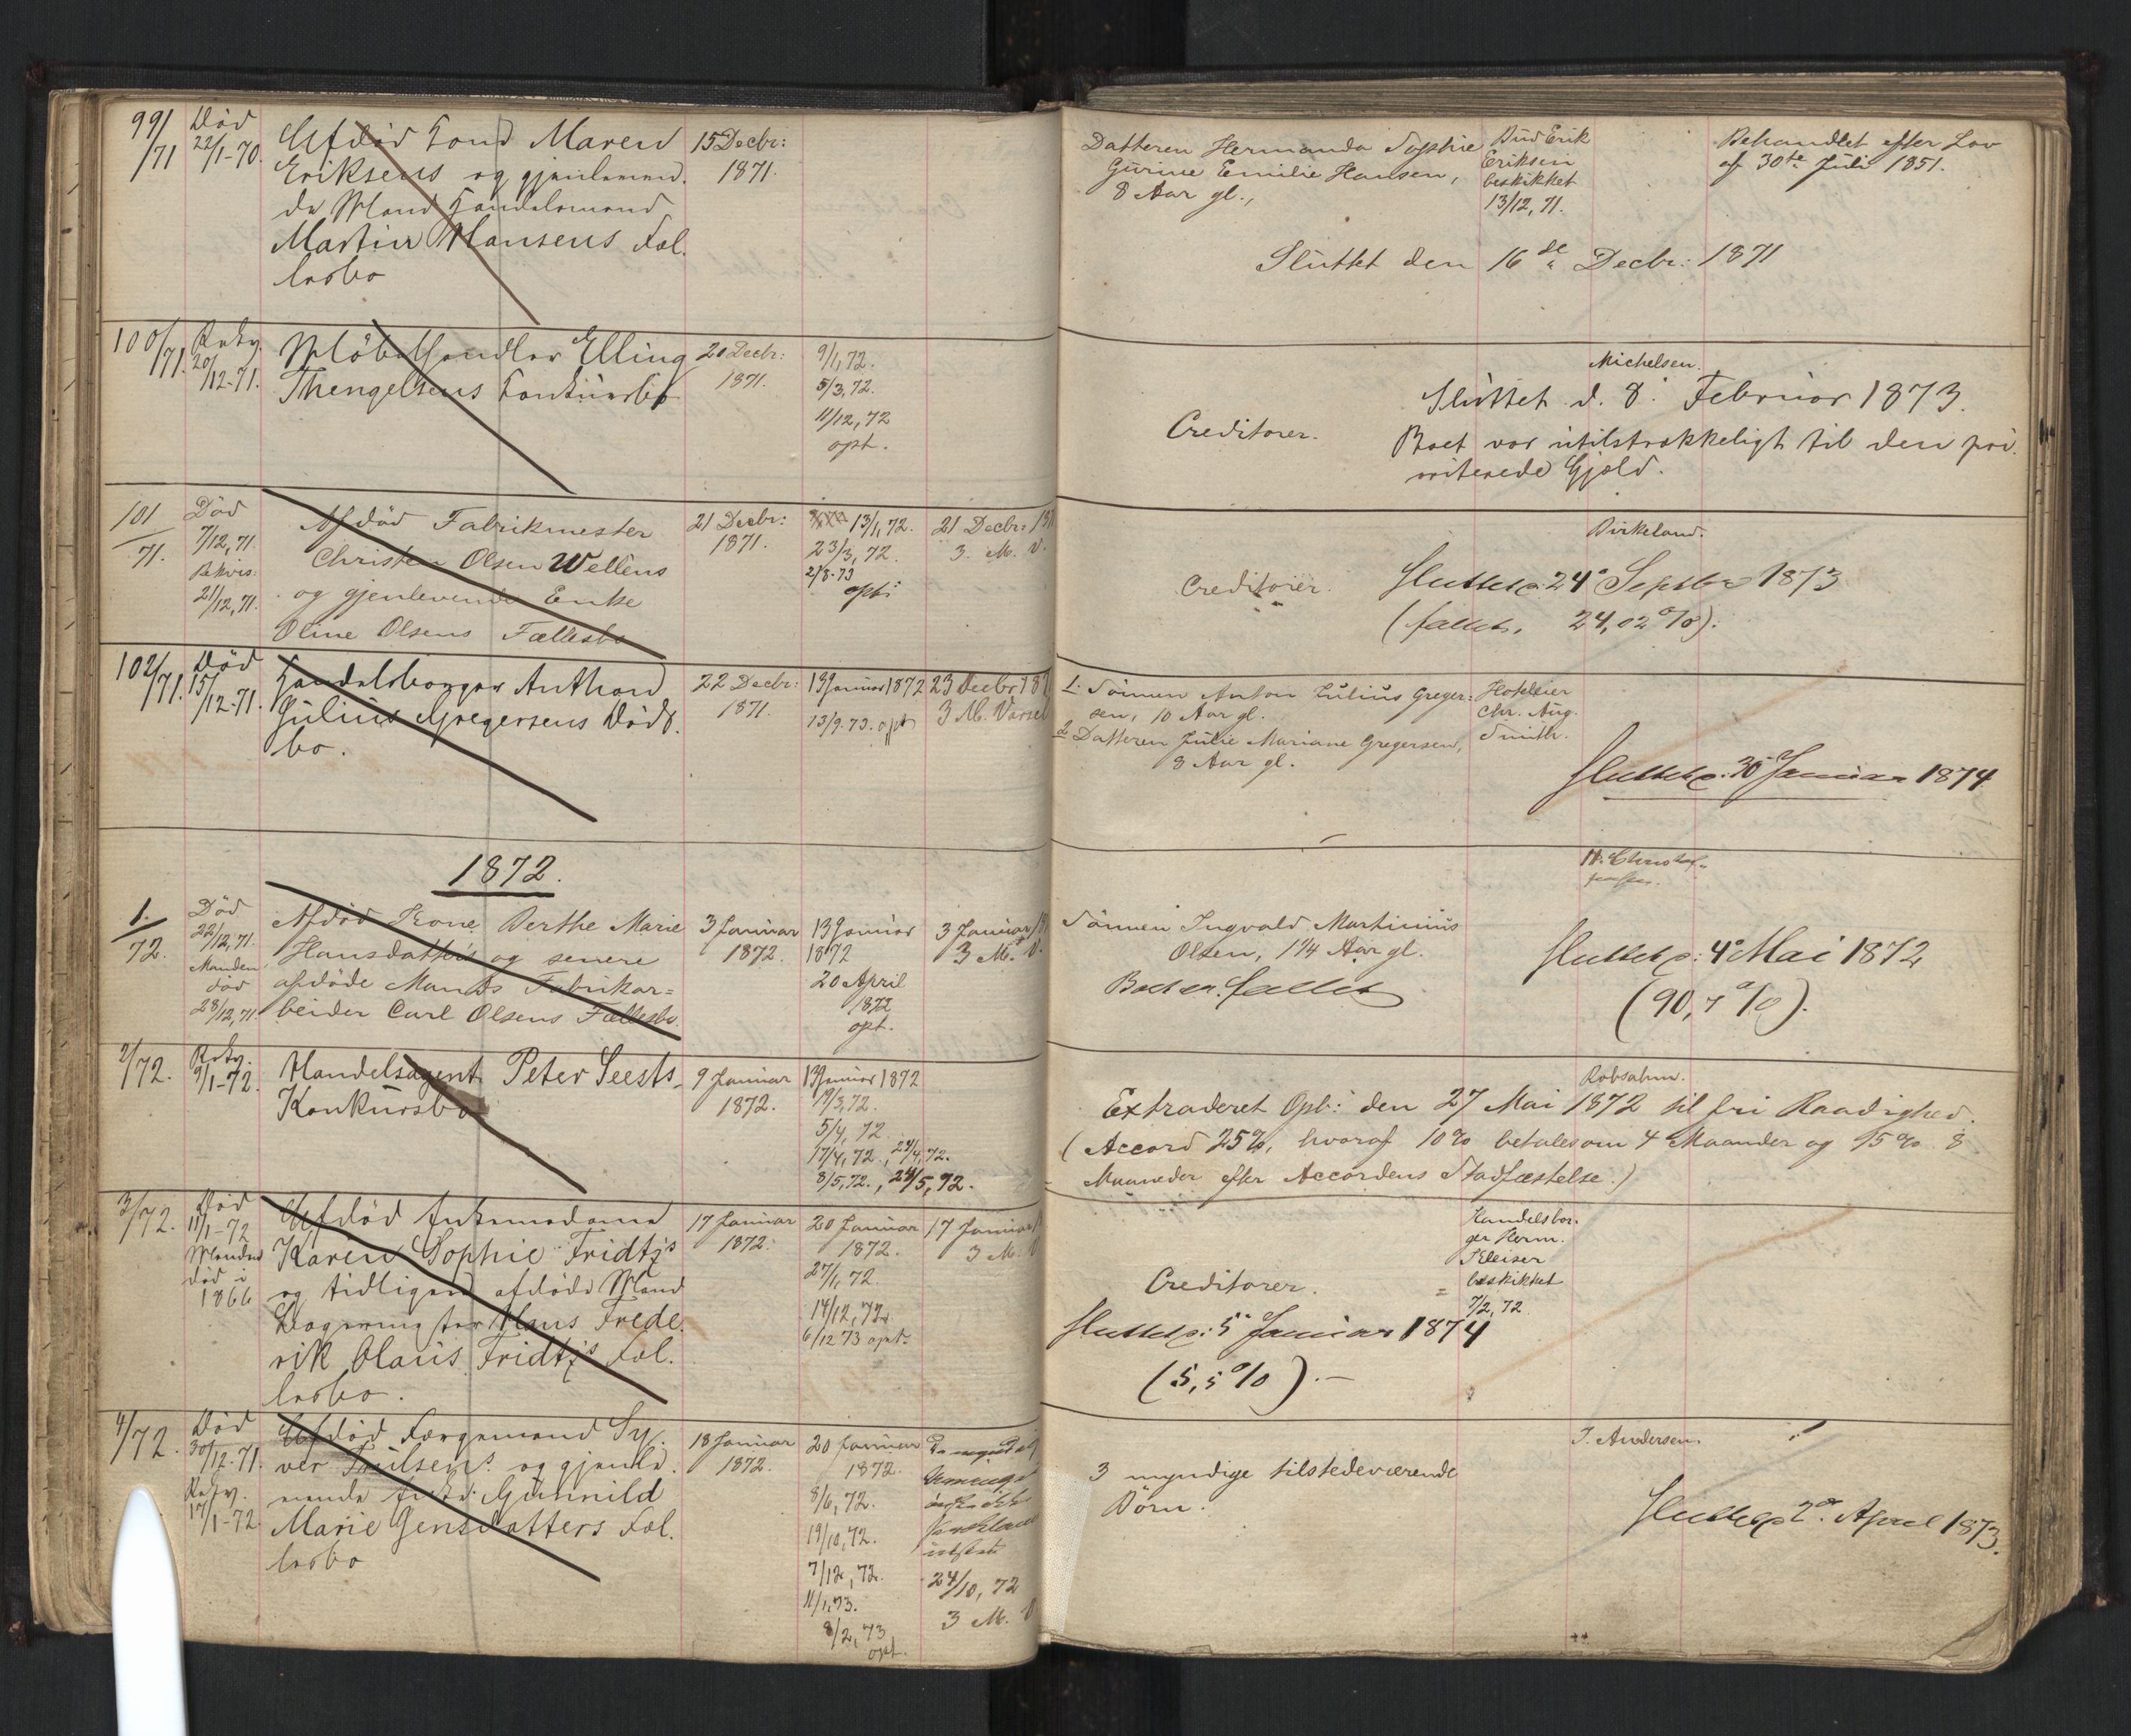 99/71
Död
22/1-70.
Afdöd Kone Maren
Eriksens og gjenleven-
de Mand Handelsmand
Martin Hansens Fæl-
lesbo
15 Decbr:
1871.
Datteren Hermanda Sophie
Gurine Emilie Hansen,
8 Aar gl.,
Bud Erik
Eriksen
beskikket
13/12, 71.
Behandlet efter Lov
af 30te Juli 1851.
Sluttet den 16de Decbr: 1871
100/71.
Rekv.
20/12-71.
Möbelhandler Elling
Thengelsens Konkursbo
20 Decbr:
1871.
9/1, 72.
5/3, 72.
11/12, 72
opt.
Creditorer.
Michelsen.
Sluttet d. 8. Februar 1873.
Boet var utilstrækkeligt til den pri-
oriterede Gjæld.
101/71.
Död
7/12, 71.
Rekvis:
21/12, 71.
Afdöd Fabrikmester
Christen Olsen Wellens
og gjenlevende Enke
Oline Olsens Fællesbo
21 Decbr:
1871.
13/1, 72.
23/3, 72.
2/8-73
opt:
21 Decbr: 187
3. M. V.
Creditorer.
Birkeland.
Sluttet 24 Septbr 1873
(fallit, 24,02 %).
102/71.
Död
15/12-71.
Handelsborger Anthon
Julius Gregersens Döds-
bo.
22 Decbr:
1871.
13 Januar 1872
13/9. 73. opt
23 Decbr 187
3 M. Varsel
1. Sönnen Anton Julius Greger-
sen, 10 Aar gl.
2. Datteren Julie Mariane Gregersen,
8 Aar gl.
Hoteleier
Chr. Aug.
Smith.
Sluttet 30 Januar 1874
1872.
1/72.
Död
22/12, 71.
Manden
död
28/12, 71
Afdöd Kone Berthe Marie
Hansdatters og senere
afdöde Mands Fabrikar=
beider Carl Olsens Fællesbo.
3 Januar
1872.
13 Januar
1872
20 April
1872
opt.
3 Januar
3 M. V.
Sönnen Ingvald Martinius
Olsen, 1 1/4 Aar gl.
Boet er fallit
Sluttet 4 Mai 1872
(90,7 %).
2/72.
Rekv.
9/1-72.
Handelsagent Peter Seests
Konkursbo
9 Januar
1872.
13 Januar 1872
5/4, 72
17/4, 72., 24/4, 72.
8/5, 72., 24/5, 72.
Robsahm.
Extraderet Opb: den 27 Mai 1872 til fri Raadighed.
(Accord 25%, hvoraf 10% betales om 4 Maander og 15% 8
Maaneder efter Accordens Stadfæstelse.)
3/72.
Död
11/1-72
Manden
död i
1866
Afdöd Enkemadame
Karen Sophie Fridtz's
og tidligere afdöde Mand
Hans Frede-
rik Olaus Fridtz's Fæl-
lesbo.
17 Januar
1872.
20 Januar
1872.
27/1, 72.
14/12, 72.
6/12 73 opt.
17 Januar
3 M. V
Creditorer.
Handelsbor-
ger Herm.
Kleiser
beskikket
7/2, 72.
Sluttet 5 Januar 1874
(5,5 %).
4/72.
Död
30/12-71.
Rekv.
17/1-72.
Afdöd Færgemand Sy-
ver Trulsens og gjenle-
vende Enke Gunnild
Marie Jensdatters Fæl-
lesbo
18 Januar
1872.
20 Januar
1872.
8/6, 72.
19/10, 72.
7/12, 72.
11/1, 73.
8/2, 73
opt.
24/10, 72
3 M. V
3 myndige tilstedeværende
Börn.
T. Andersen.
Sluttet 2 April 1873.